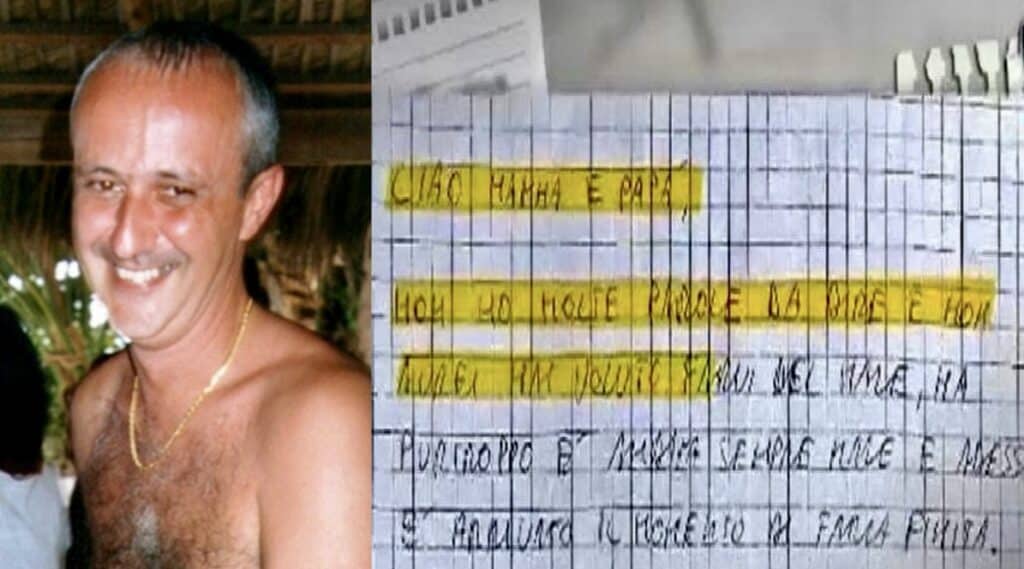 CIAO MAMMA E PAPÀ,
NON HO MOLTE PAROLE DA DIRE E NON
AVREI MAI VOLUTO FARVI DEL MALE, MA
PURTROPPO È ANDATA SEMPRE MALE E ADESS
È ARRIVATO IL MOMENTO DI FARLA FINITA.